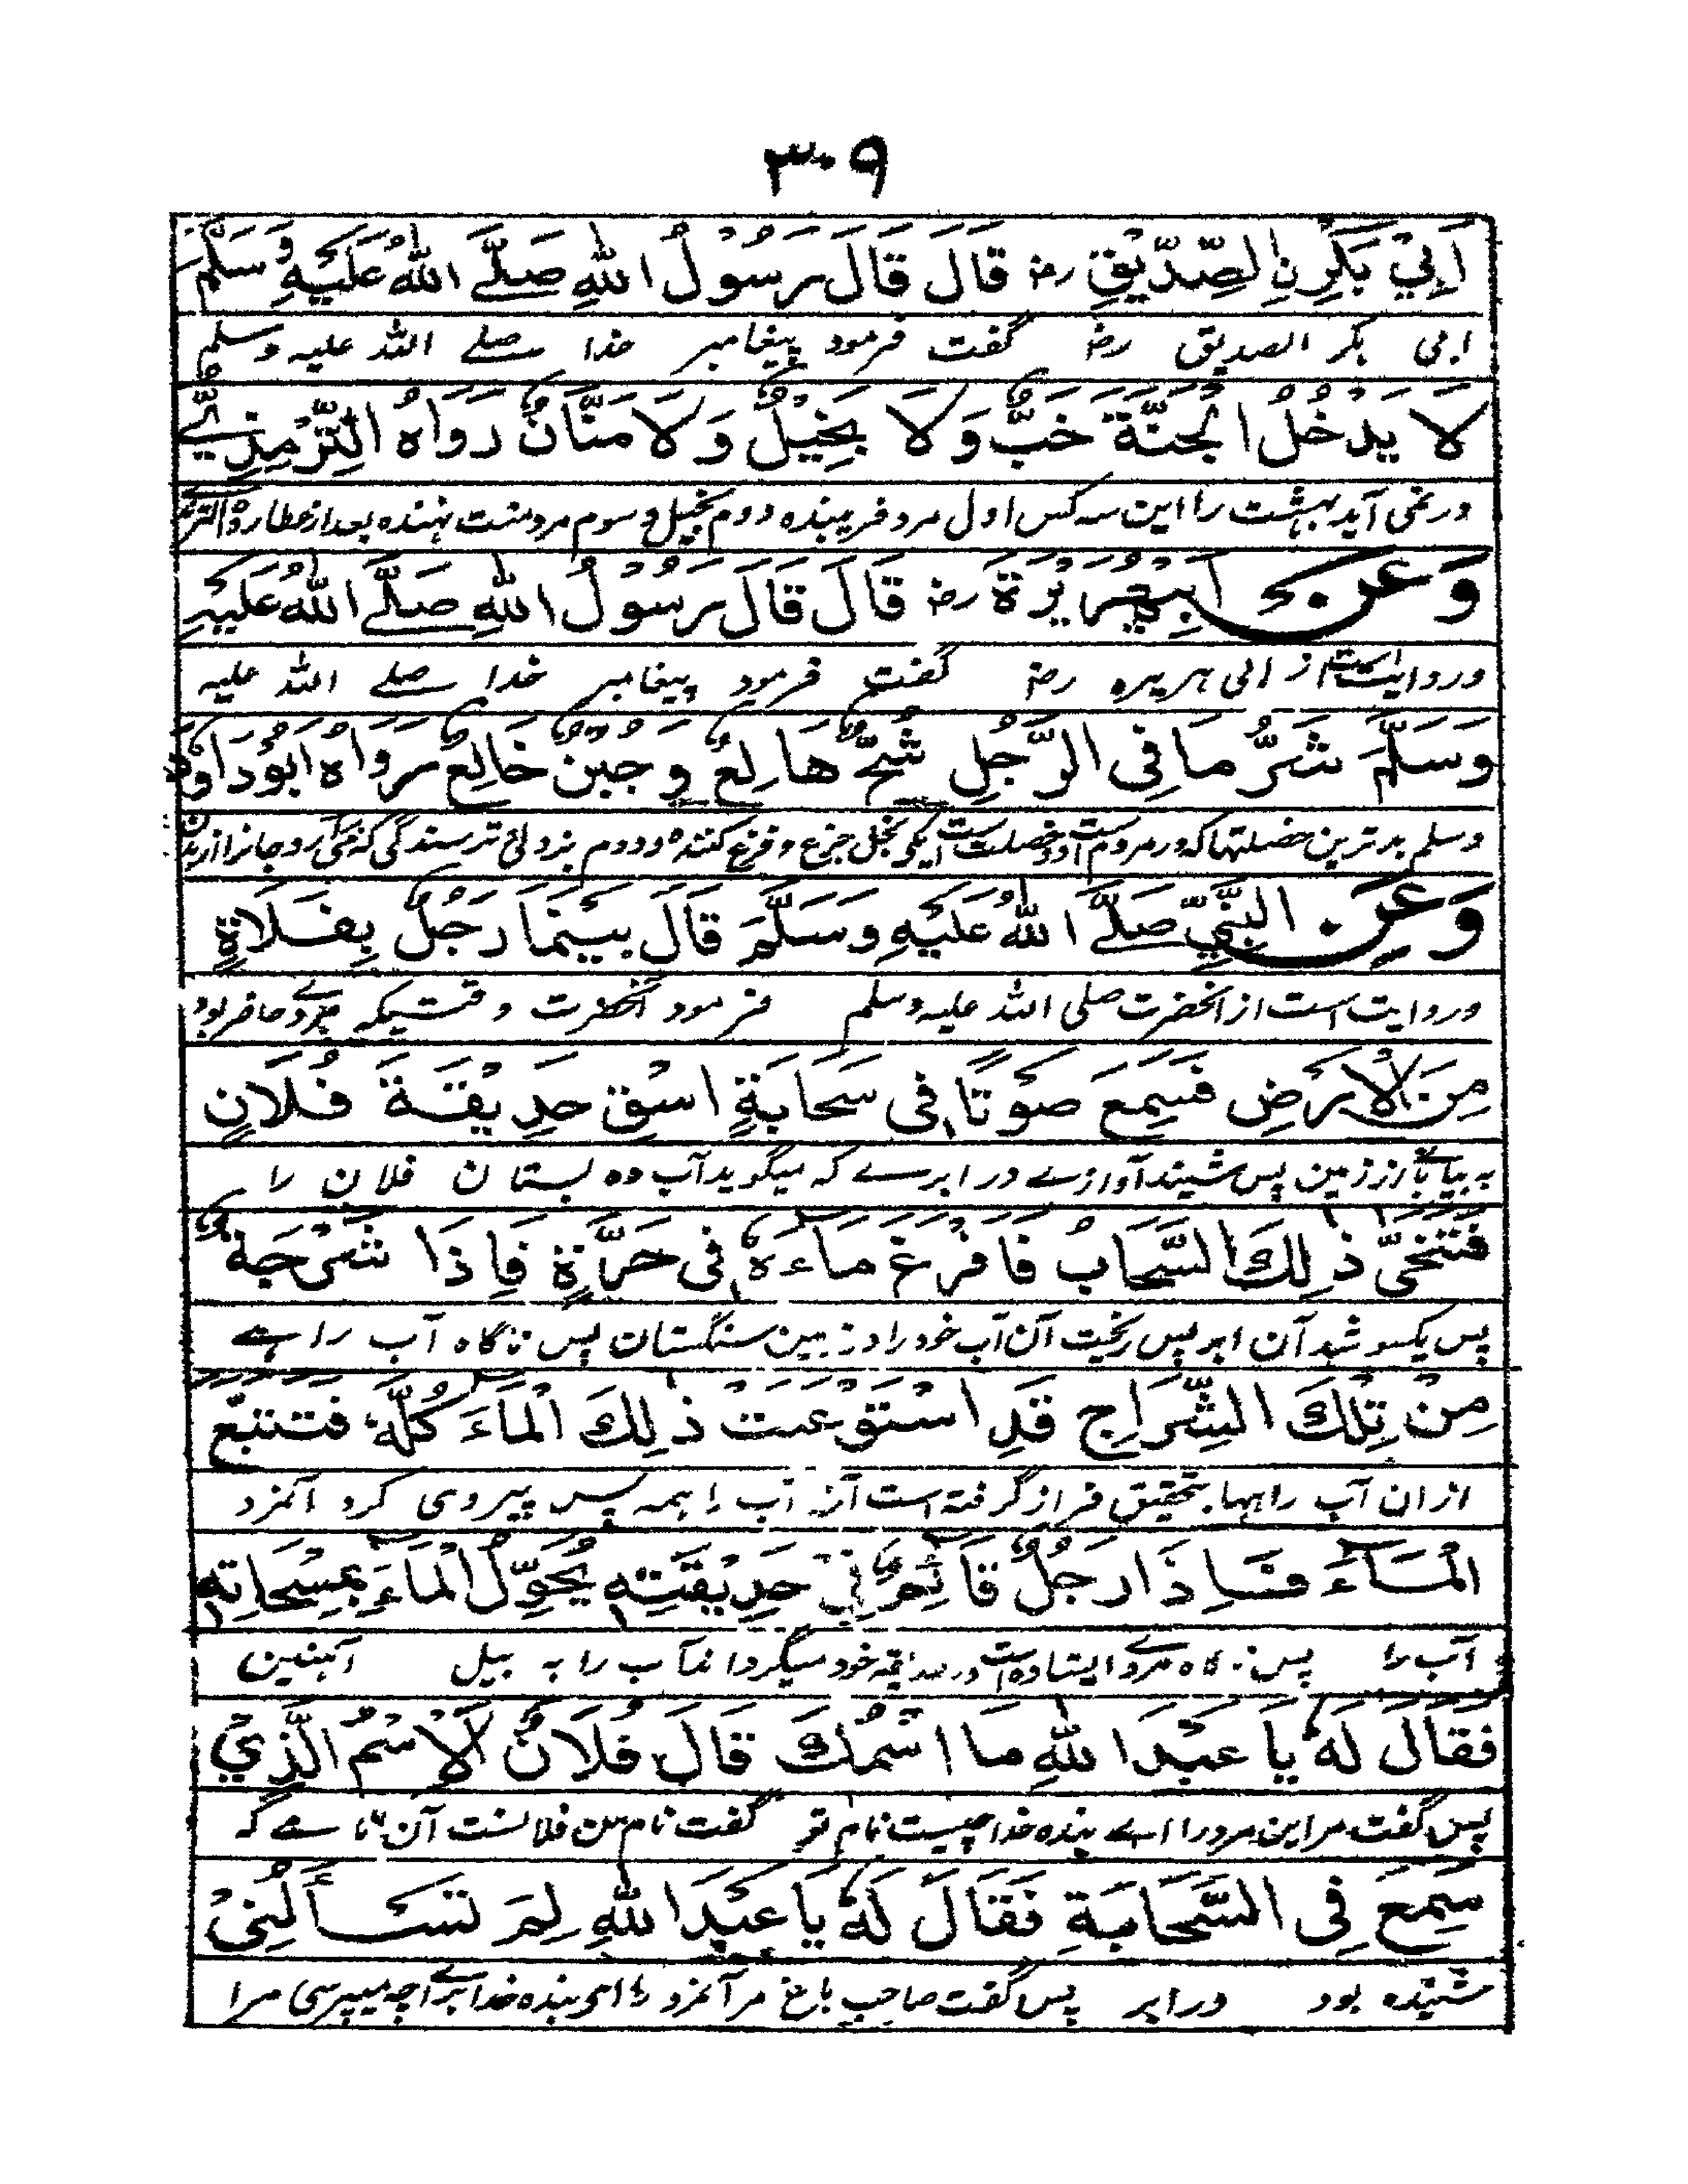 ٣٠٩
اَبِيْ بَكْرِنِ الصِّدِّيْقِ رض قَالَ قَالَ رَسُوْلُ اللهِ صَلَّے اللهُ عَلَيْهِ وَسَلَّمَ
ابی بکر الصدیق رض گفت فرمود پیغامبر خدا صلے اللہ علیہ وسلم
لَا يَدْخُلُ الْجَنَّةَ خَبٌّ وَلَا بَخِيْلٌ وَلَا مَنَّانٌ رَوَاهُ التِّرْمِذِيُّ
در نمی آید بہشت را این سہ کس اول مرد فریبندہ دوم بخیل و سوم مرد منت نہندہ بعد از عطا رواہ الترمذی
وَعَنْ اَبِيْ هُرَيْرَةَ رض قَالَ قَالَ رَسُوْلُ اللهِ صَلَّے اللهُ عَلَيْهِ
و روایت است از ابی ہریرہ رض گفت فرمود پیغامبر خدا صلے اللہ علیہ
وَسَلَّمَ شَرُّ مَا فِى الرَّجُلِ شُحٌّ هَالِعٌ وَجُبْنٌ خَالِعٌ رَوَاهُ اَبُوْدَاوٗدَ
وسلم بدترین خصلتہا کہ در مردم است دو خصلت است یکی بخل جزع و فزع کنندہ و دوم بزدلی ترسندگی کہ جانرا از
وَعَنِ النَّبِيِّ صَلَّے اللهُ عَلَيْهِ وَسَلَّمَ قَالَ بَيْنَمَا رَجُلٌ بِفَلَاةٍ
و روایت است از آنحضرت صلی اللہ علیہ وسلم فرمود آنحضرت وقتیکہ مردے حاضر بود
مِنَ الْاَرْضِ فَسَمِعَ صَوْتًا فِى سَحَابَةٍ اسْقِ حَدِيْقَةَ فُلَانٍ
بہ بیابانے از زمین پس شنید آوازے در ابرے کہ میگوید آب دہ بستان فلان را
فَتَنَحّٰى ذٰلِكَ السَّحَابُ فَافْرَغَ مَاءَهٗ فِى حَرَّةٍ فَاِذَا شَرْجَةٌ
پس یکسو شد آن ابر پس ریخت آن آب خود را در زمین سنگستان پس ناگاہ آب راہے
مِنْ تِلْكَ الشِّرَاجِ قَدِ اسْتَوْعَبَتْ ذٰلِكَ الْمَاءَ كُلَّهٗ فَتَتَبَّعَ
از ان آب راہہا بتحقیق فراز گرفتہ است آن آب را ہمہ پس پیروی کرد آنمرد
الْمَاءَ فَاِذَا رَجُلٌ قَائِمٌ فِيْ حَدِيْقَتِهٖ يُحَوِّلُ الْمَاءَ بِمِسْحَاتِهٖ
آب را پس ناگاہ مردے ایستادہ است در حدیقہ خود میگرداند آب را بہ بیل آہنین
فَقَالَ لَهٗ يَا عَبْدَ اللهِ مَا اسْمُكَ قَالَ فُلَانٌ الْاِسْمُ الَّذِيْ
پس گفت مر این مرد را اے بندہ خدا چیست نام تو گفت نام من فلانست آن نامے کہ
سَمِعَ فِى السَّحَابَةِ فَقَالَ لَهٗ يَا عَبْدَ اللهِ لِمَ تَسْأَلُنِىْ
شنیدہ بود در ابر پس گفت صاحب باغ مر آنمرد را ای بندہ خدا برای چہ میپرسی مرا